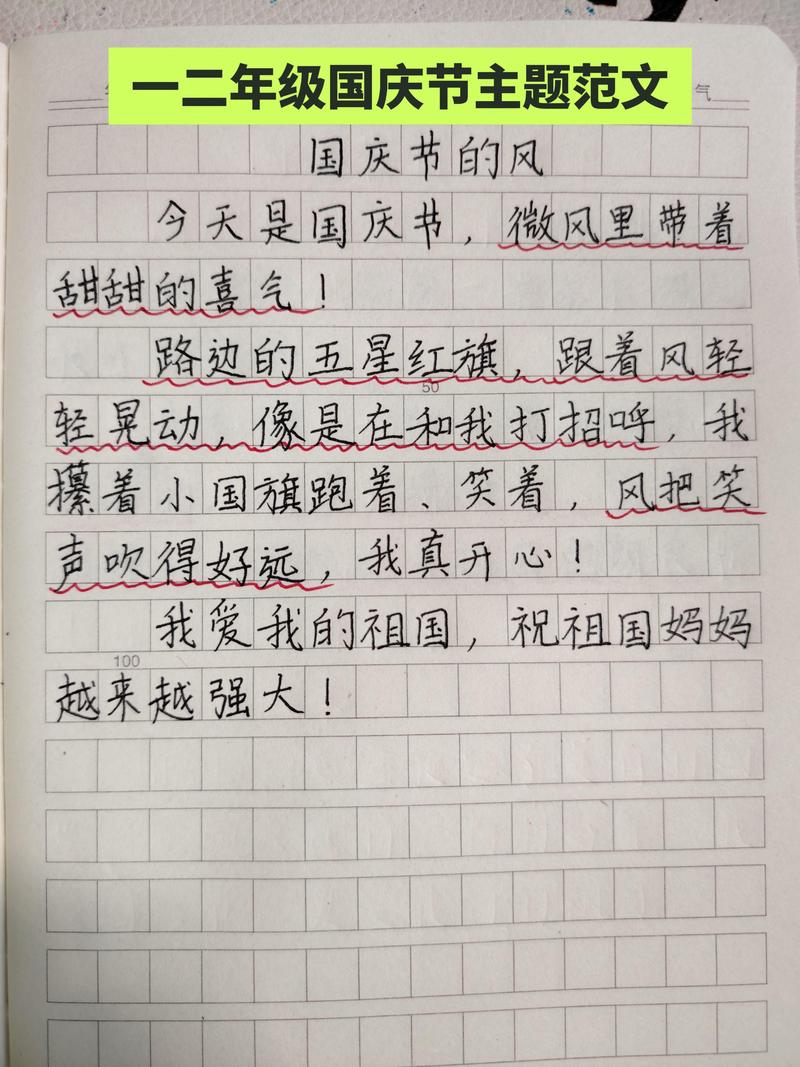 一二年级国庆节主题范文
气
国庆节的风
今天是国庆节，微风里带着
甜甜的喜气！
路边的五星红旗，跟着风轻
50
轻晃动，像是在和我打招呼，我
攥着小国旗跑着、笑着，风把笑
声吹得好远，我真开心！
我爱我的祖国，祝祖国妈妈
100
越来越强大！